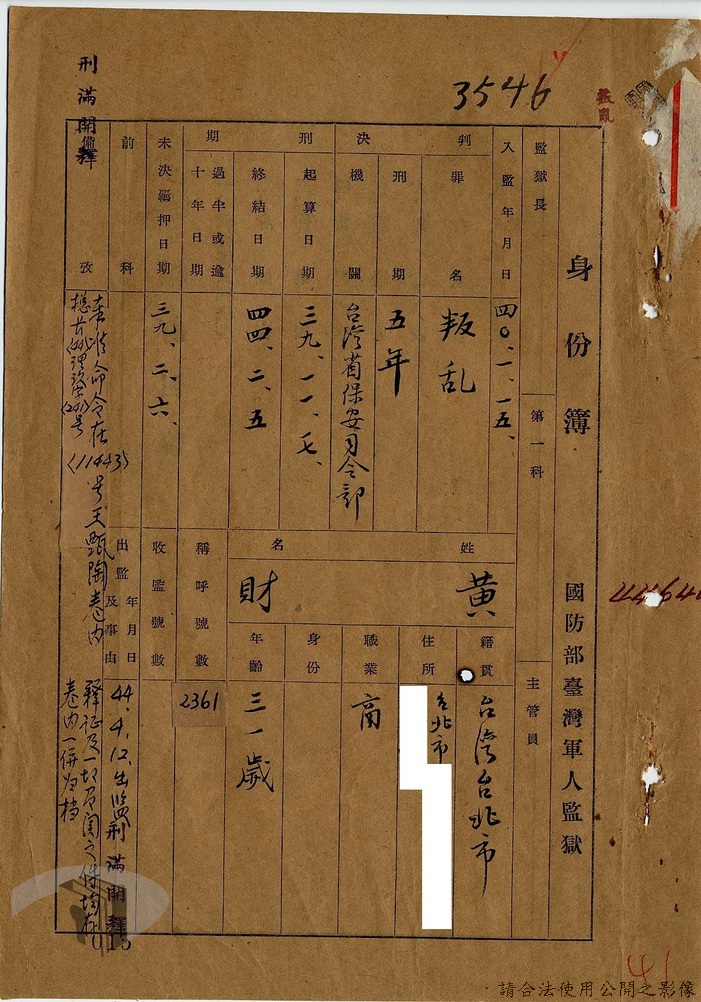 3546
叛亂
刑滿開釋
身份簿
國防部臺灣軍人監獄
監獄長
第一科
主管員
入監年月日
四〇、一、一五、
判決
罪名
叛乱
刑期
五年
機關
台湾省保安司令部
刑期
起算日期
三九、一一、七、
終結日期
四四、二、五
過半或逾十年日期
未決羈押日期
三九、二、六、
前科
姓名
黄財
籍貫
台湾台北市
住所
台北市
職業
商
身份
年齡
三一歲
稱呼號數
2361
收監號數
出監年月日及事由
44.4.12.出监刑滿開釋
攷
查此命令在
(11443)号王甄陶卷内
釋征及一切有関之件均存
卷内一併归档
44646
41
·請合法使用公開之影像